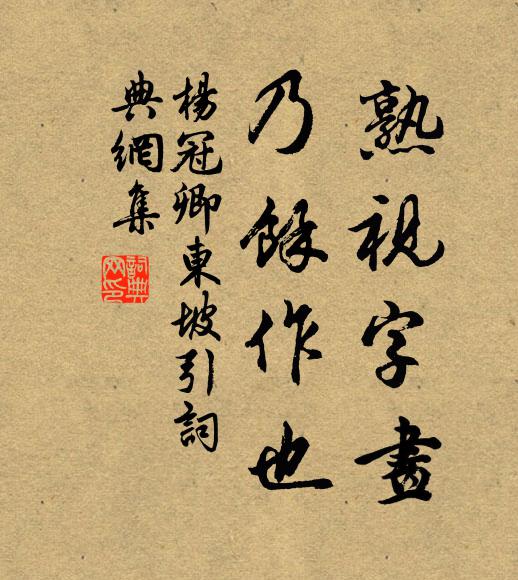 熟視字畫
乃餘作也
楊冠卿東坡引詞
典網集
詞典網印